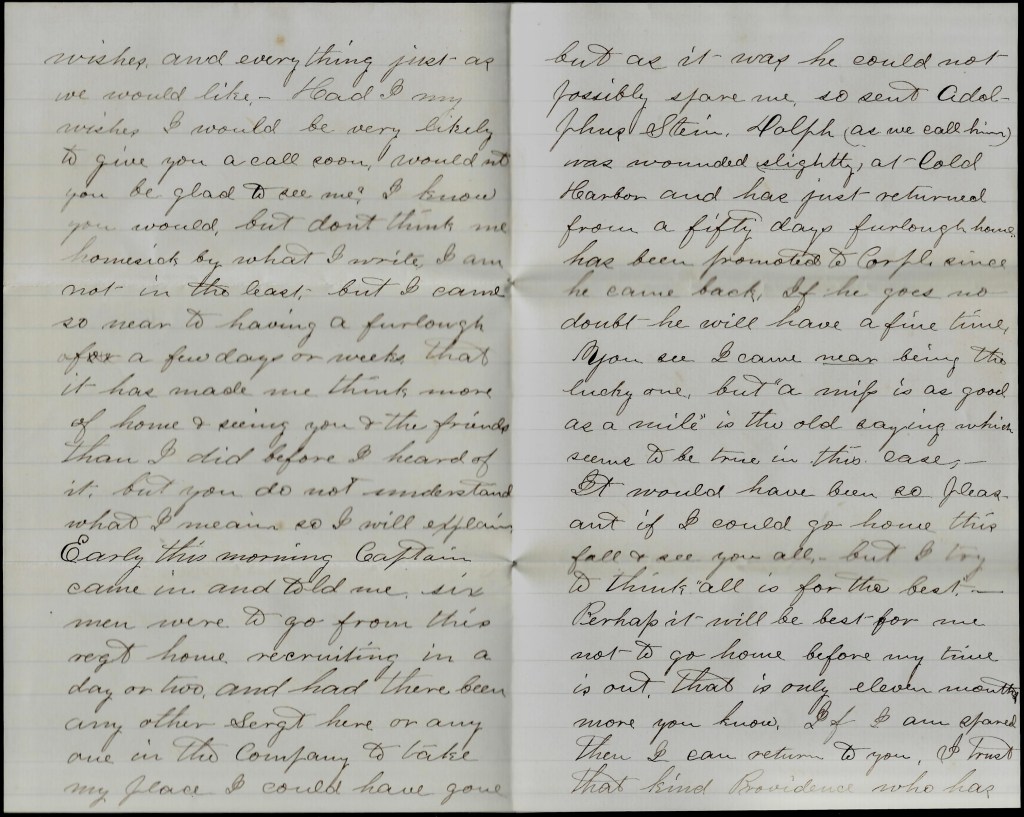 wishes, and everything just as
we would like,- Had I my
wishes I would be very likely
to give you a call soon, would not
you be glad to see me? I know
you would, but dont think me
homesick by what I write, I am
not in the least, but I came
so near to having a furlough
for a few days or weeks that
it has made me think more
of home & seeing you & the friends
than I did before I heard of
it, but you do not understand
what I mean so I will explain
Early this morning Captain
came in and told me six
men were to go from this
regt home recruiting in a
day or two, and had there been
any other Sergt here or any
one in the Company to take
my place I could have gone
but as it was he could not
possibly spare me, so sent Adol-
phus Stein. Dolph (as we call him)
was wounded slightly, at Cold
Harbor and has just returned
from a fifty days furlough home.
has been promoted to Corpl. since
he came back, If he goes no
doubt he will have a fine time,
You see I came near being the
lucky one, but "a miss is as good
as a mile" is the old saying which
seems to be true in this case,-
It would have been so pleas-
ant if I could go home this
fall & see you all,- but I try
to think "all is for the best,"-
Perhaps it will be best for me
not to go home before my time
is out, that is only eleven months
more you know, If I am spared
then I can return to you, I trust
that kind Providence who has